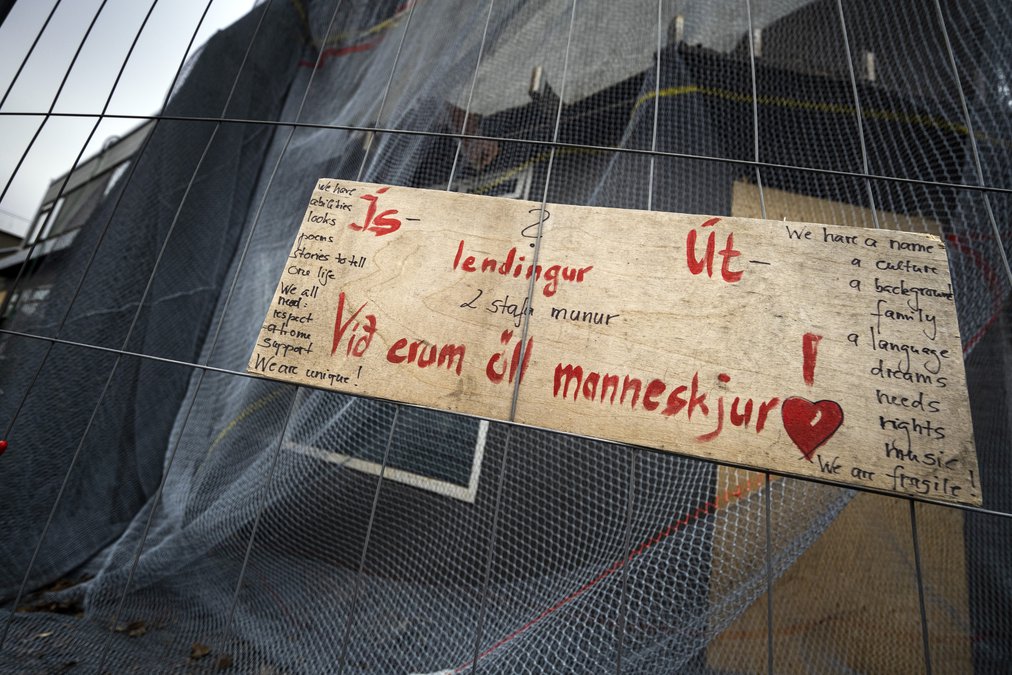 we have
abilities
looks
poems
stories to tell
one life
We all
need:
respect
a home
support
We are unique!
Ís-
2
Út-
lendingur
2 stafa munur
Við erum öll manneskjur!
We have a name
a culture
a background
family
a language
dreams
needs
rights
music!
We are fragile